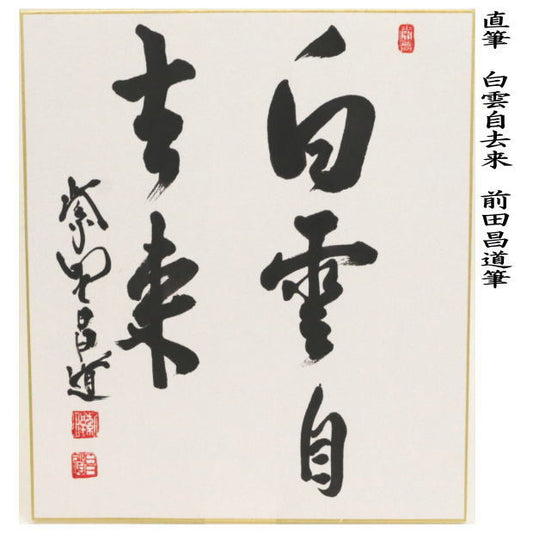 直筆 白雲自去来 前田昌道筆
白雲自
去来
紫野昌道